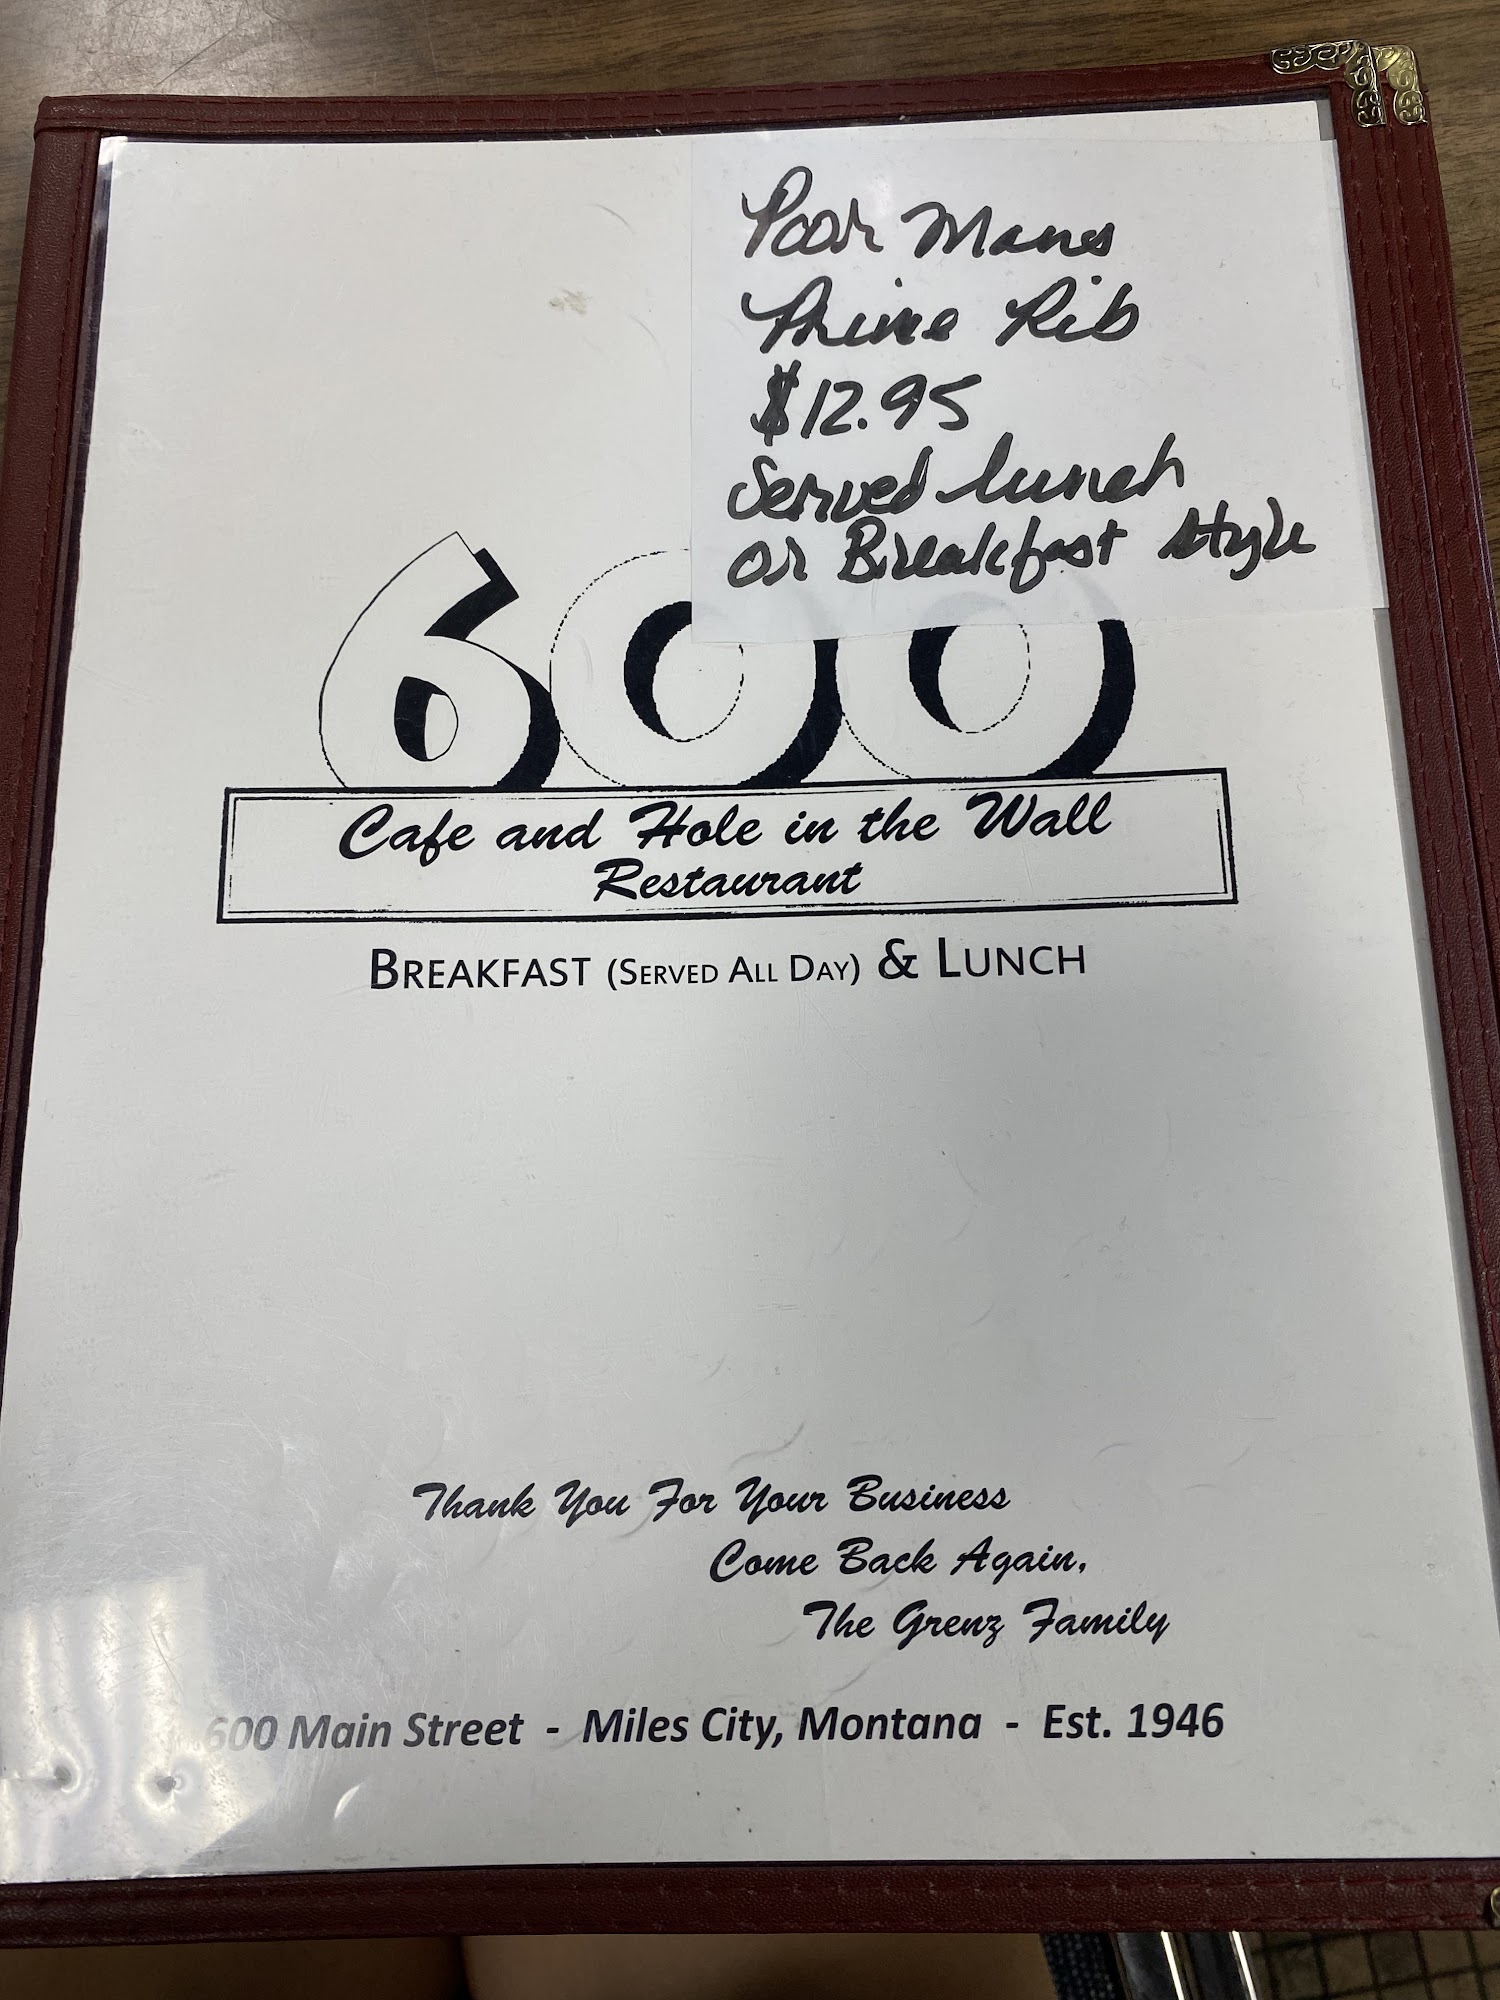 Poor Manes
Prime Rib
$12.95
Served lunch
or Breakfast style
600
Cafe and Hole in the Wall
Restaurant
BREAKFAST (SERVED ALL DAY) & LUNCH
Thank You For Your Business
Come Back Again,
The Grenz Family
600 Main Street - Miles City, Montana - Est. 1946